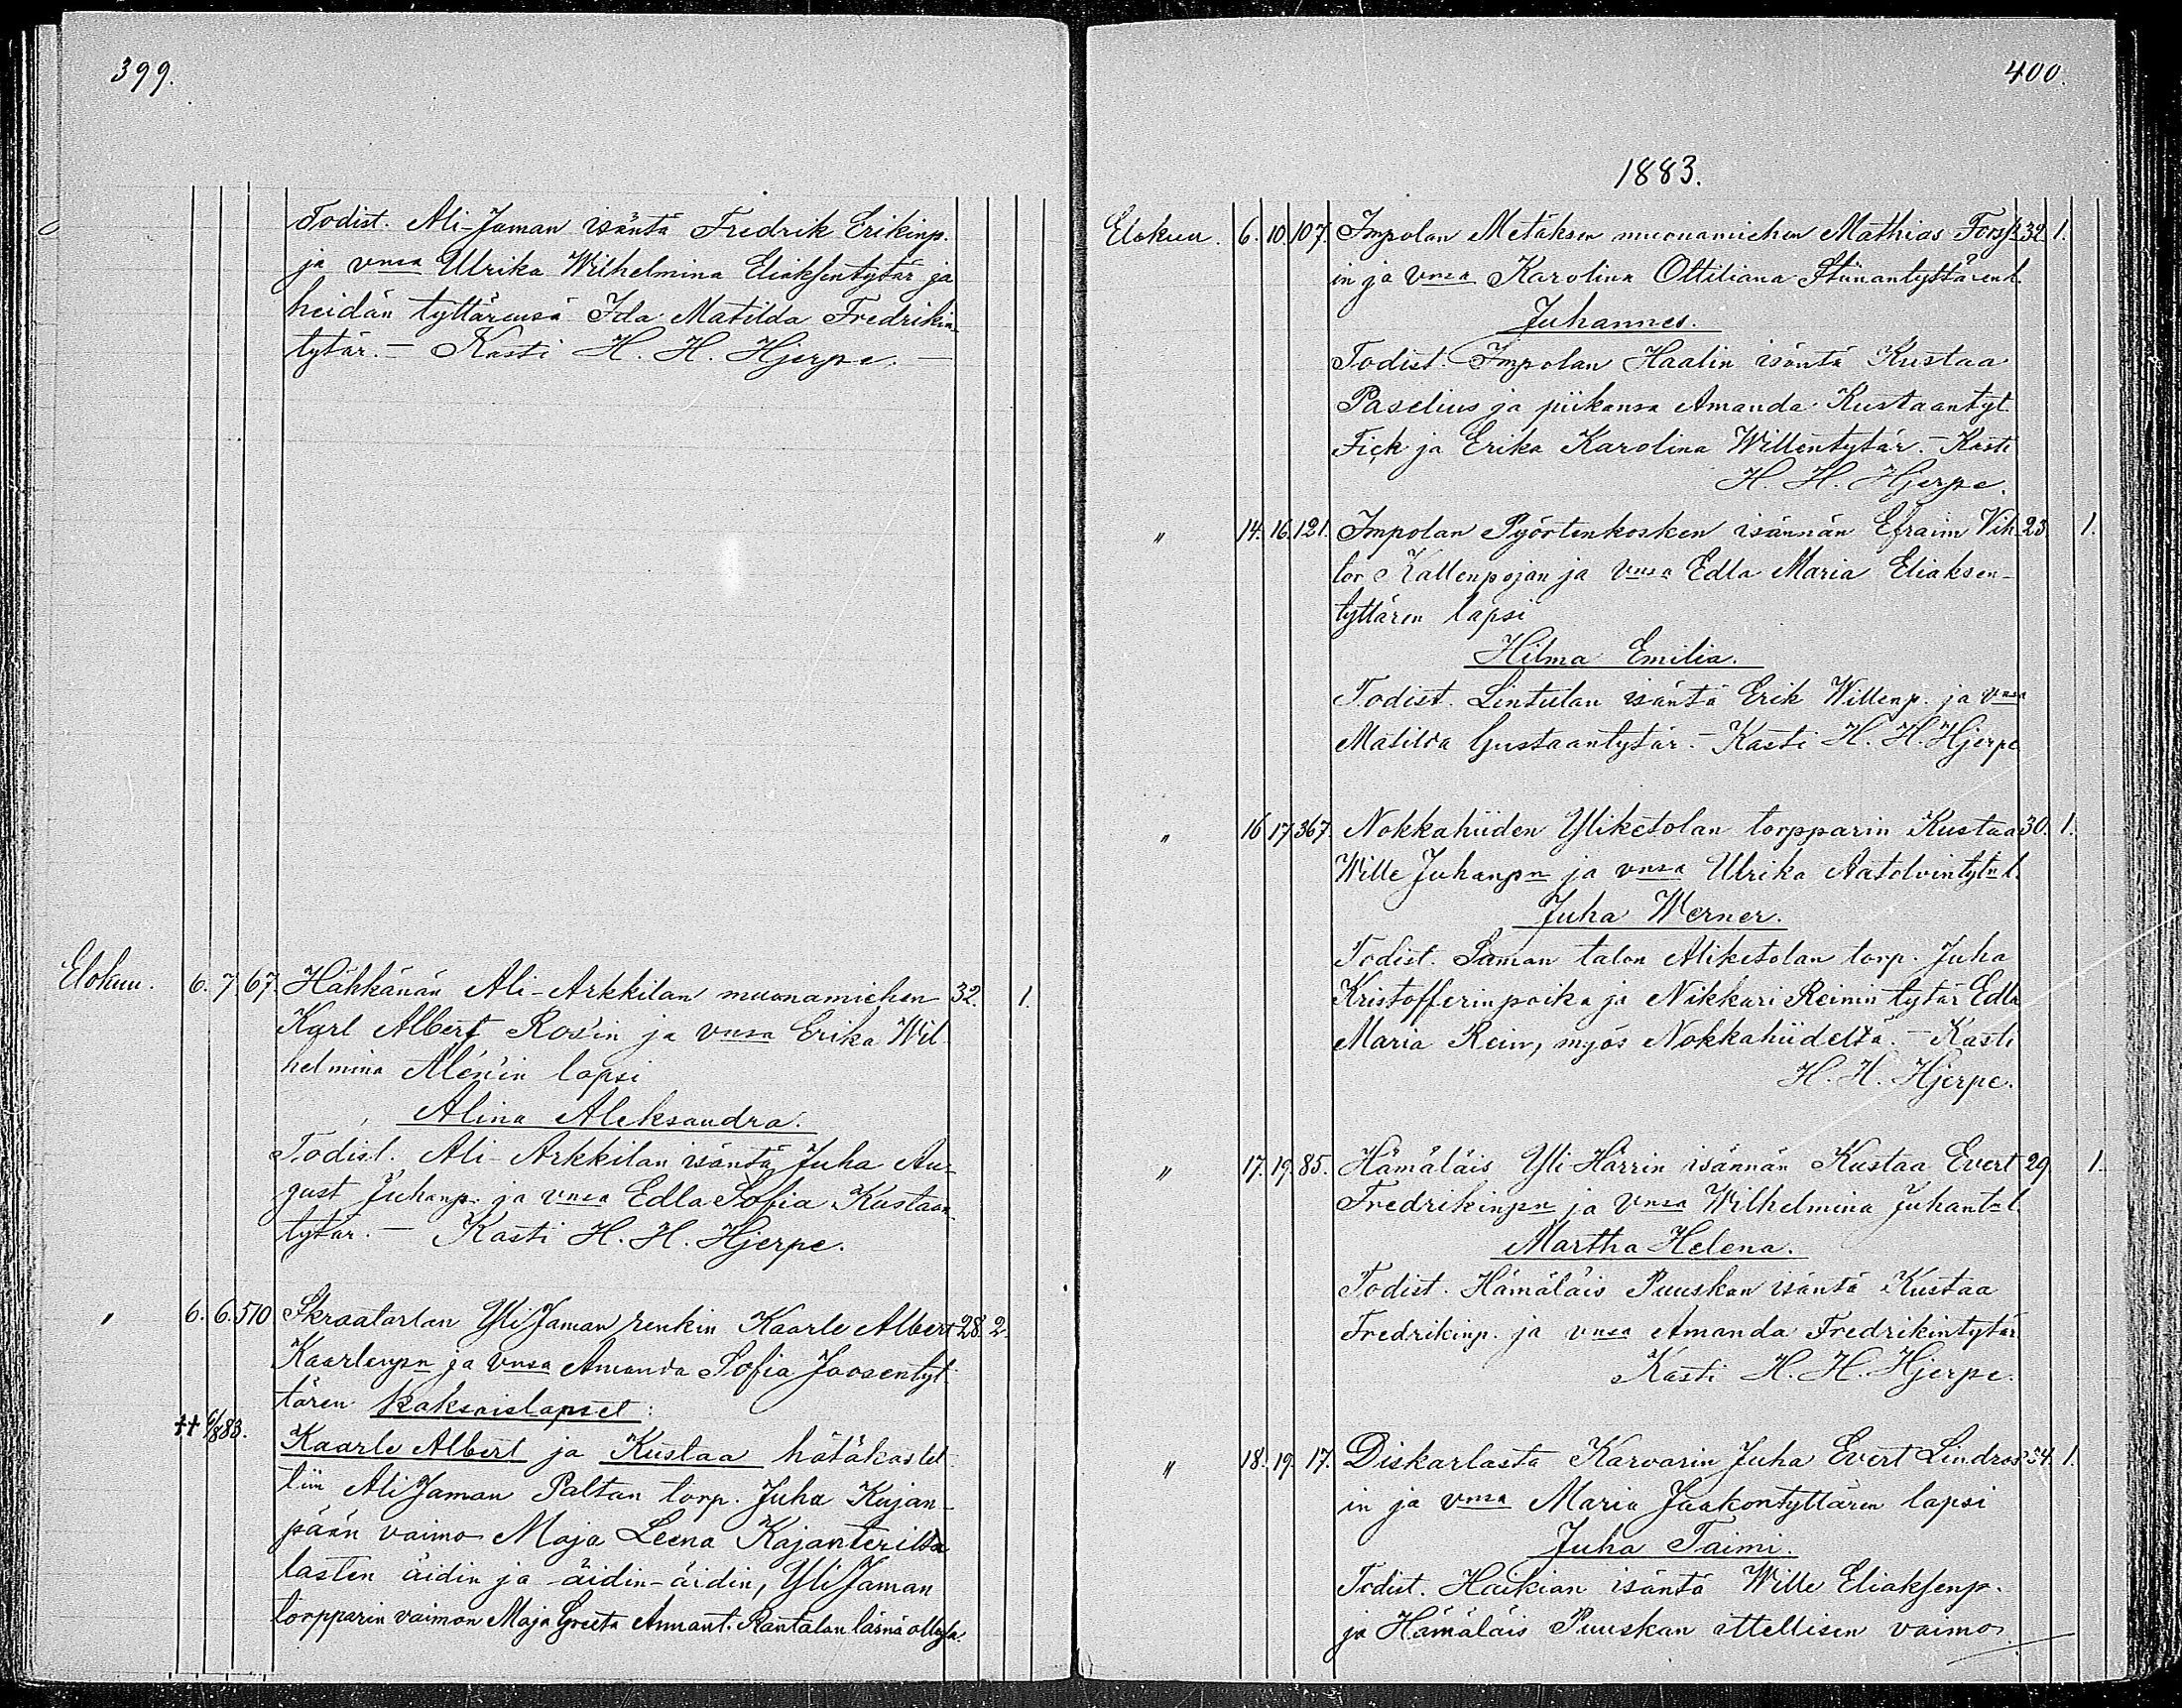 399.
Todist. Ali-Jaman isäntä Fredrik Erikinp.
ja vnsa Ulrika Wilhelmina Eliaksentytär ja
heidän tyttärensä Ida Matilda Fredrikin-
tytär. — Kasti H. H. Hjerpe. —
Elokuu. 6. 7. 67. Hähkänän Ali-Arkkilan muonamiehen 32. 1.
Karl Albert Ros'in ja vnsa Erika Wil-
helmina Alén'in lapsi
Alina Aleksandra.
Todist. Ali-Arkkilan isäntä Juha Au-
gust Juhanp. ja vnsa Edla Sofia Kustaan-
tytär. — Kasti H. H. Hjerpe.
" 6. 6. 510 Skraatarlan Yli Jaman renkin Kaarle Albert 28. 2.
Kaarlenpn ja vnsa Amanda Sofia Joosentyt-
tären kaksoislapset:
†† 6/8 83. Kaarle Albert ja Kustaa hätäkastet-
tiin Ali Jaman Paltan torp. Juha Kujan-
pään vaimo Maja Leena Kajanterilta
lasten äidin ja äidin-äidin, Yli Jaman
torpparin vaimon Maja Greeta Annant. Rantalan läsnä ollessa.
400.
1883.
Elokuu. 6. 10. 107. Impolan Metäksen muonamiehen Mathias Forss- 32. 1.
in ja vnsa Karolina Ottiliana tyttären l.
Juhannes.
Todist. Impolan Haalin isäntä Kustaa
Paselius ja piikansa Amanda Kustaantyt.
Fick ja Erika Karolina Willentytär. — Kasti
H. H. Hjerpe.
" 14. 16. 121. Impolan Pyörtenkosken isännän Efraim Vik- 23. 1.
tor Kallenpojan ja vnsa Edla Maria Eliaksen-
tyttären lapsi
Hilma Emilia.
Todist. Lintulan isäntä Erik Willenp. ja vnsa
Matilda Gustaantytär. — Kasti H. H. Hjerpe
" 16 17 367. Nokkahiiden Yliketolan torpparin Kustaa 30. 1.
Wille Juhanpn ja vnsa Ulrika Aatolvintytn l.
Juha Werner.
Todist. Saman talon Aliketolan torp. Juha
Kristofferinpoika ja Nikkari Reinin tytär Edla
Maria Rein, myös Nokkahiideltä. — Kasti
H. H. Hjerpe.
" 17. 19. 85. Hämäläis Yli Härrin isännän Kustaa Evert 29. 1.
Fredrikinpn ja vnsa Wilhelmina Juhantn l.
Martha Helena.
Todist. Hämäläis Puuskan isäntä Kustaa
Fredrikinp. ja vnsa Amanda Fredrikintytär
Kasti H. H. Hjerpe.
" 18. 19. 17. Diskarlasta Karvarin Juha Evert Lindros- 34. 1.
in ja vnsa Maria Jaakontyttären lapsi
Juha Taimi.
Todist. Haikian isäntä Wille Eliaksenp.
ja Hämäläis Puuskan ittellisen vaimo